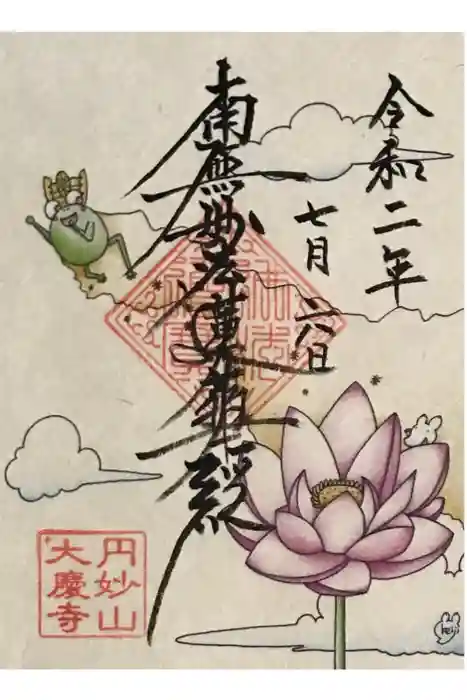 令和二年
七月
南無妙法蓮華経
佛法僧寶
円妙山
大慶寺